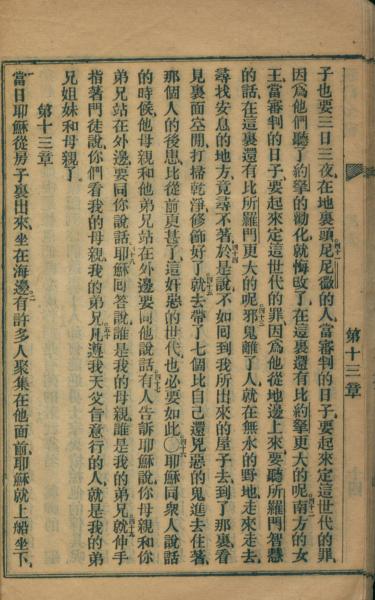 子也要三日三夜在地裏頭尼尼微的人當審判的日子要起來定這世代的罪
因爲他們聽了約拏的勸化就悔改了在這裏還有比約拏更大的呢南方的女
王當審判的日子要起來定這世代的罪因爲他從地邊上來要聽所羅門智慧
的話在這裏還有比所羅門更大的呢邪鬼離了人就在無水的野地走來走去
尋找安息的地方竟尋不著於是說不如回到我所出來的屋子去到了那裏看
見裏面空閒打掃乾淨修飾好了就去帶了七個比自己還兇惡的鬼進去住著
那個人的後患比從前更甚了這奸惡的世代也必要如此〇耶穌同衆人說話
的時候他母親和他弟兄站在外邊要同他說話有人告訴耶穌說你母親和你
弟兄站在外邊要同你說話耶穌回答說誰是我的母親誰是我的弟兄就伸手
指著門徒說你們看我的母親我的弟兄凡遵我天父旨意行的人就是我的弟
兄姐妹和母親了
第十三章
當日耶穌從房子裏出來坐在海邊有許多人聚集在他面前耶穌就上船坐下
第十三章